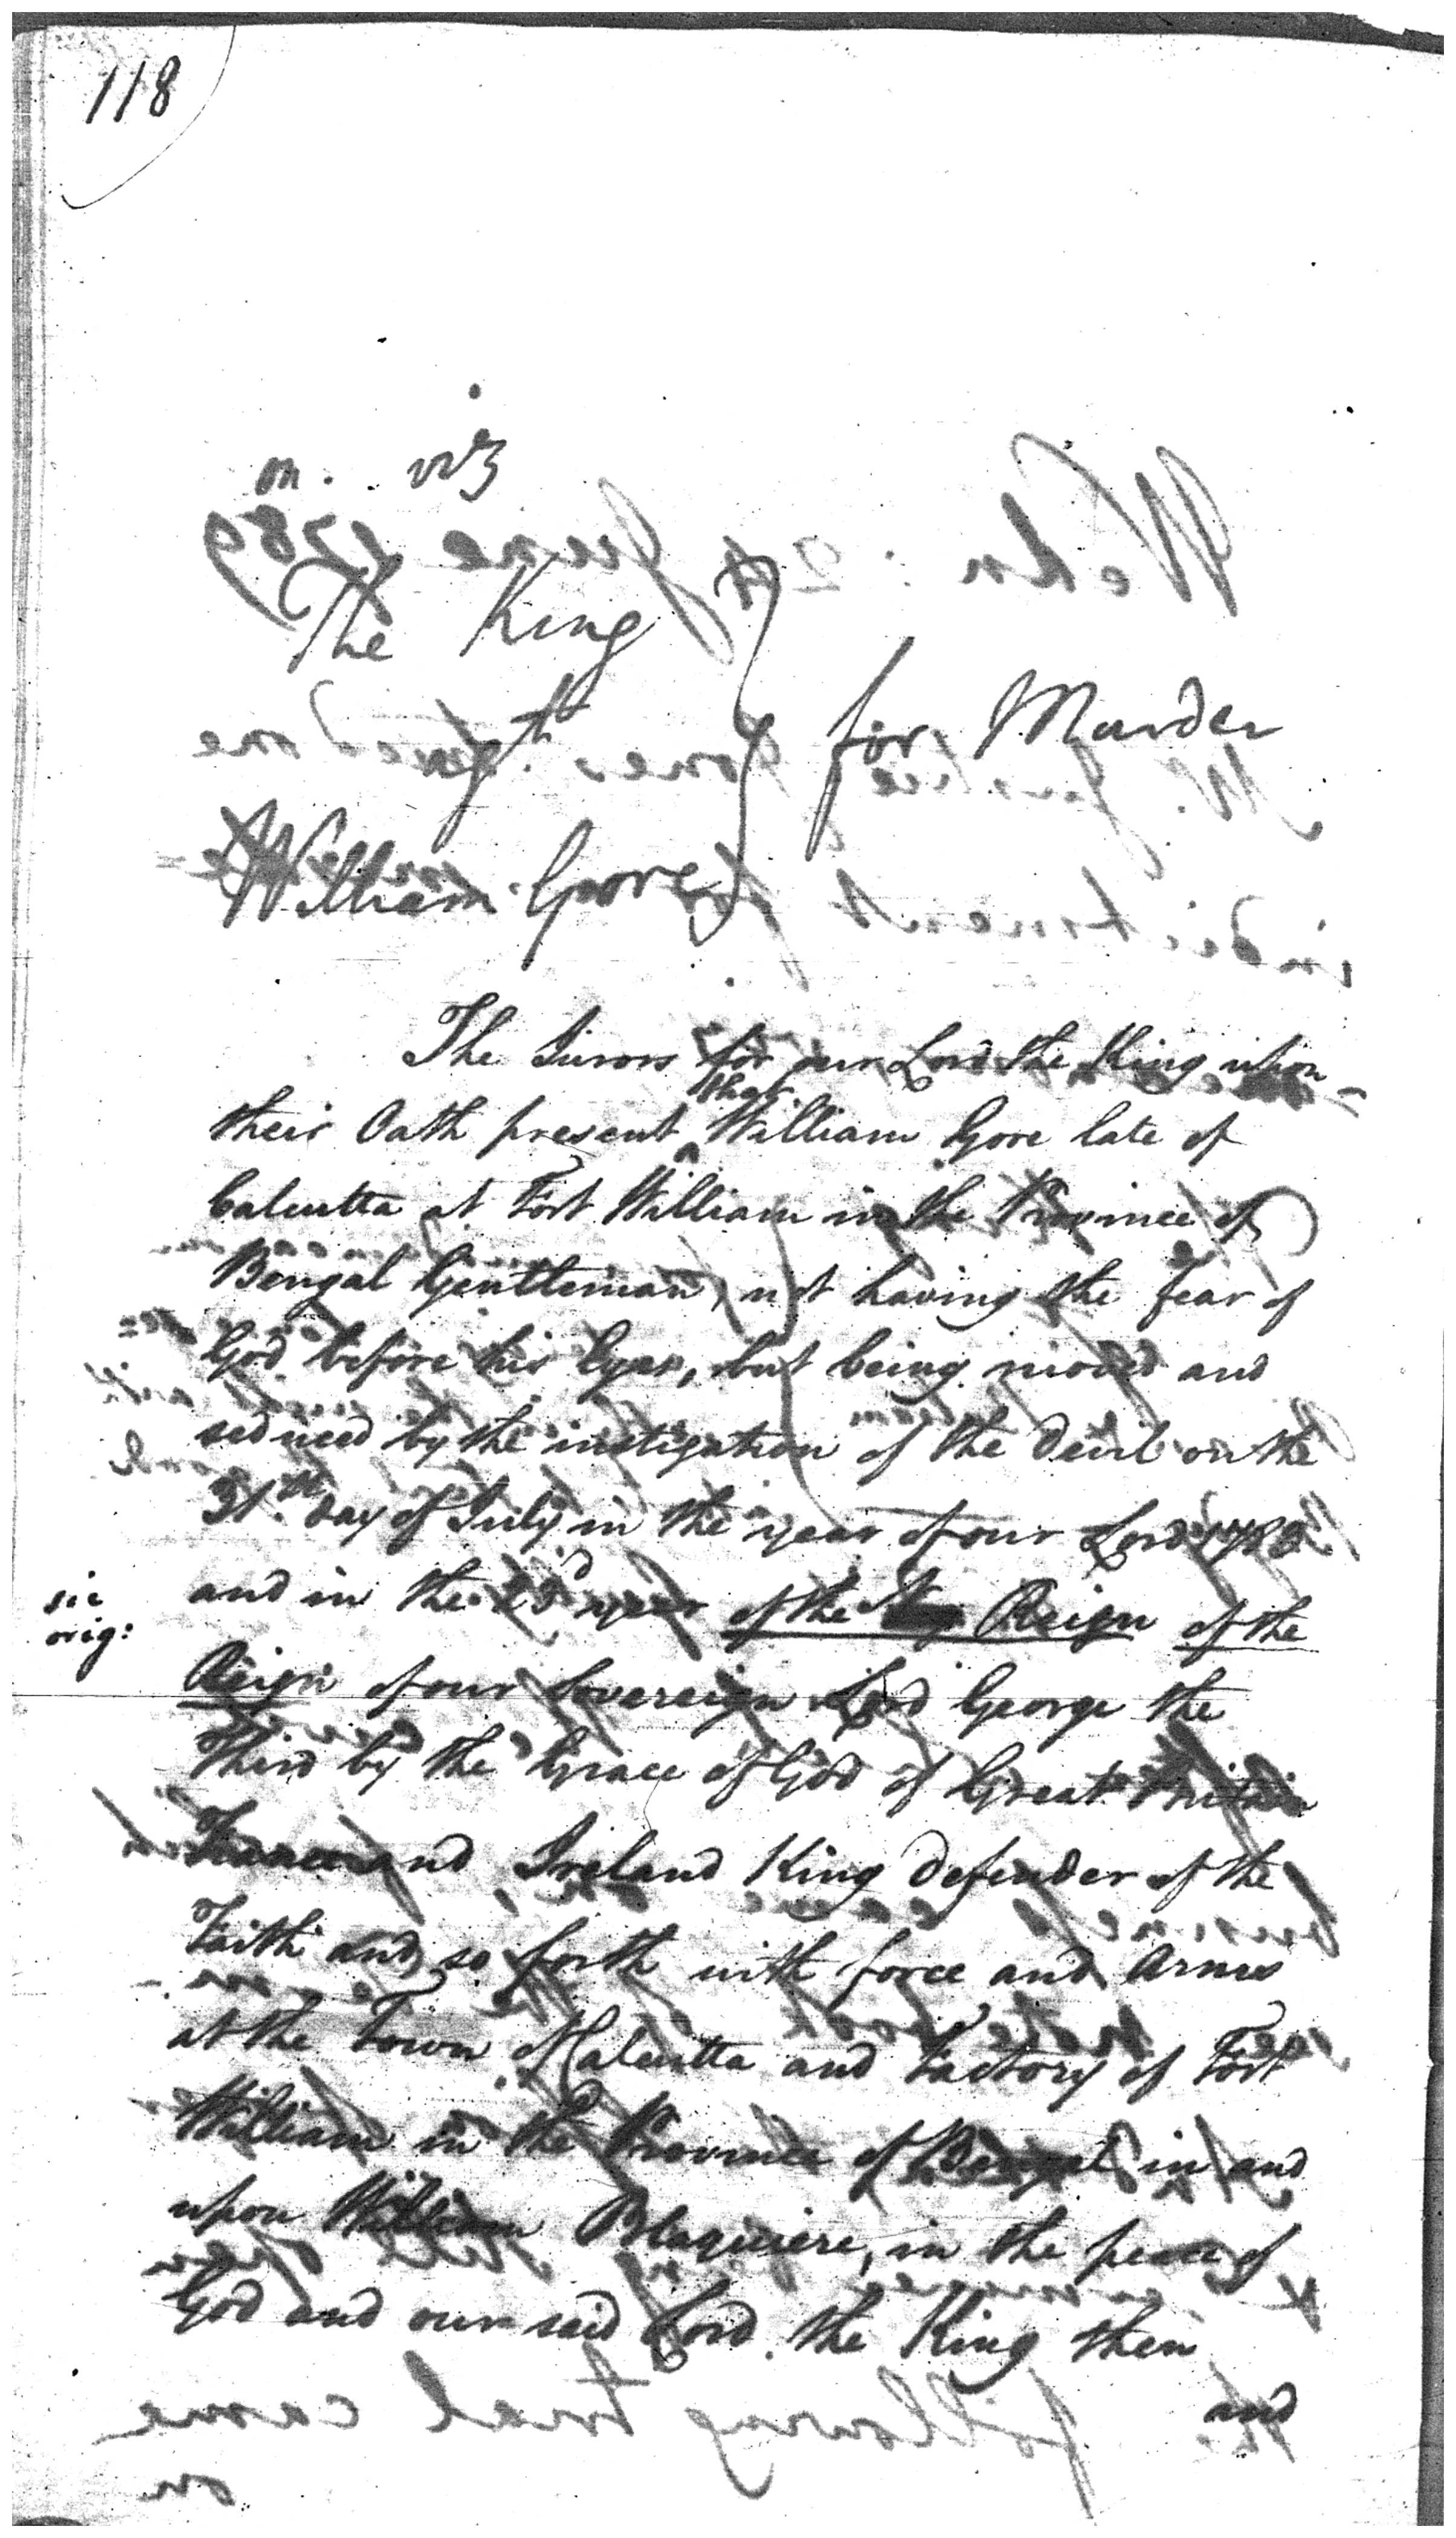 118
on. viz
The King
agt
William Gore
for Murder
The Jurors for our Lord the King upon
their Oath present that William Gore late of
Calcutta at Fort William in the Province of
Bengal Gentleman, not having the fear of
God before his Eyes, but being moved and
seduced by the instigation of the Devil on the
31.th day of July in the year of our Lord
and in the 23d year of the Reign of the
sic
orig:
Reign of our Sovereign Lord George the
Third by the Grace of God of Great Britain
France and Ireland King defender of the
Faith and so forth with force and Arms
at the Town of Calcutta and Factory of Fort
William in the Province of Bengal in and
upon William Blaquiere, in the peace of
God and our said Lord the King then
and